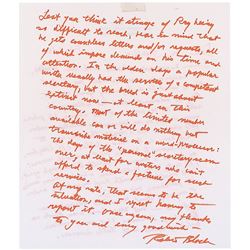 Lest you think it strange of Ray being
so difficult to reach, bear in mind that
he gets countless letters and/or requests, all
of which impose demands on his time and
attention. In the olden days a popular
writer usually had the services of a competent
secretary, but the breed is just about
extinct now — at least in this
country. Most of the limited number
available can or will do nothing but
transcribe material on a word-processor:
the day of the "personal" secretary is
over, at least for writers who can't
afford to spend a fortune for such
services.
At any rate, that seems to be the
situation, and I regret having to
report it. Once again, my thanks
to you and every good wish —
Robert Bloch